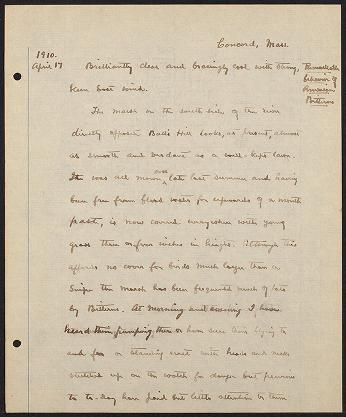 Concord, Mass.
1910.
April 17
Brilliantly clear and bracingly cool with strong,
keen East wind.
Remarkable
behavior of
American
Bitterns
The marsh on the south side of the river
directly opposite Ball's Hill looks, at present, almost
as smooth and verdant as a well-kept lawn.
It was all mown over late last summer and having
been free from flood water for upwards of a month
past, is now covered everywhere with young
grass three or four inches in height. Although this
affords no cover for birds much larger than a
Snipe the marsh has been frequented much of late
by Bitterns. At morning and evening I have
heard them pumping there or have seen them flying to
and fro or standing erect with heads and necks
stretched up on the watch for danger but previous
to to-day have paid but little attention to them